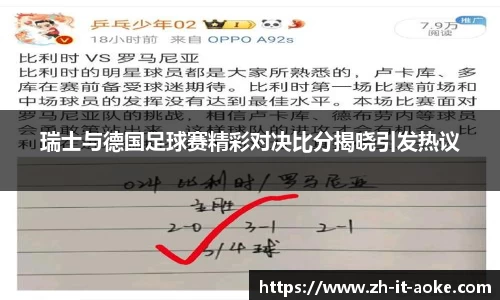 乒乓少年02
7.9万
推广
阅读
18小时前 来自 OPPO A92s
比利时 VS 罗马尼亚
比利时的明星球员都是大家所熟悉的，卢卡库、多
库在赛前备受球迷期待。比利时第一场比赛前场和
中场球员的发挥没有达到最佳水平。本场比赛面对
罗马尼亚队的挑战，相信卢卡库、德布劳内等球员
瑞士与德国足球赛精彩对决比分揭晓引发热议
024 比利时/罗马尼亚
主胜
2-0 3-1 2-1
3/4球
https://www.zh-it-aoke.com